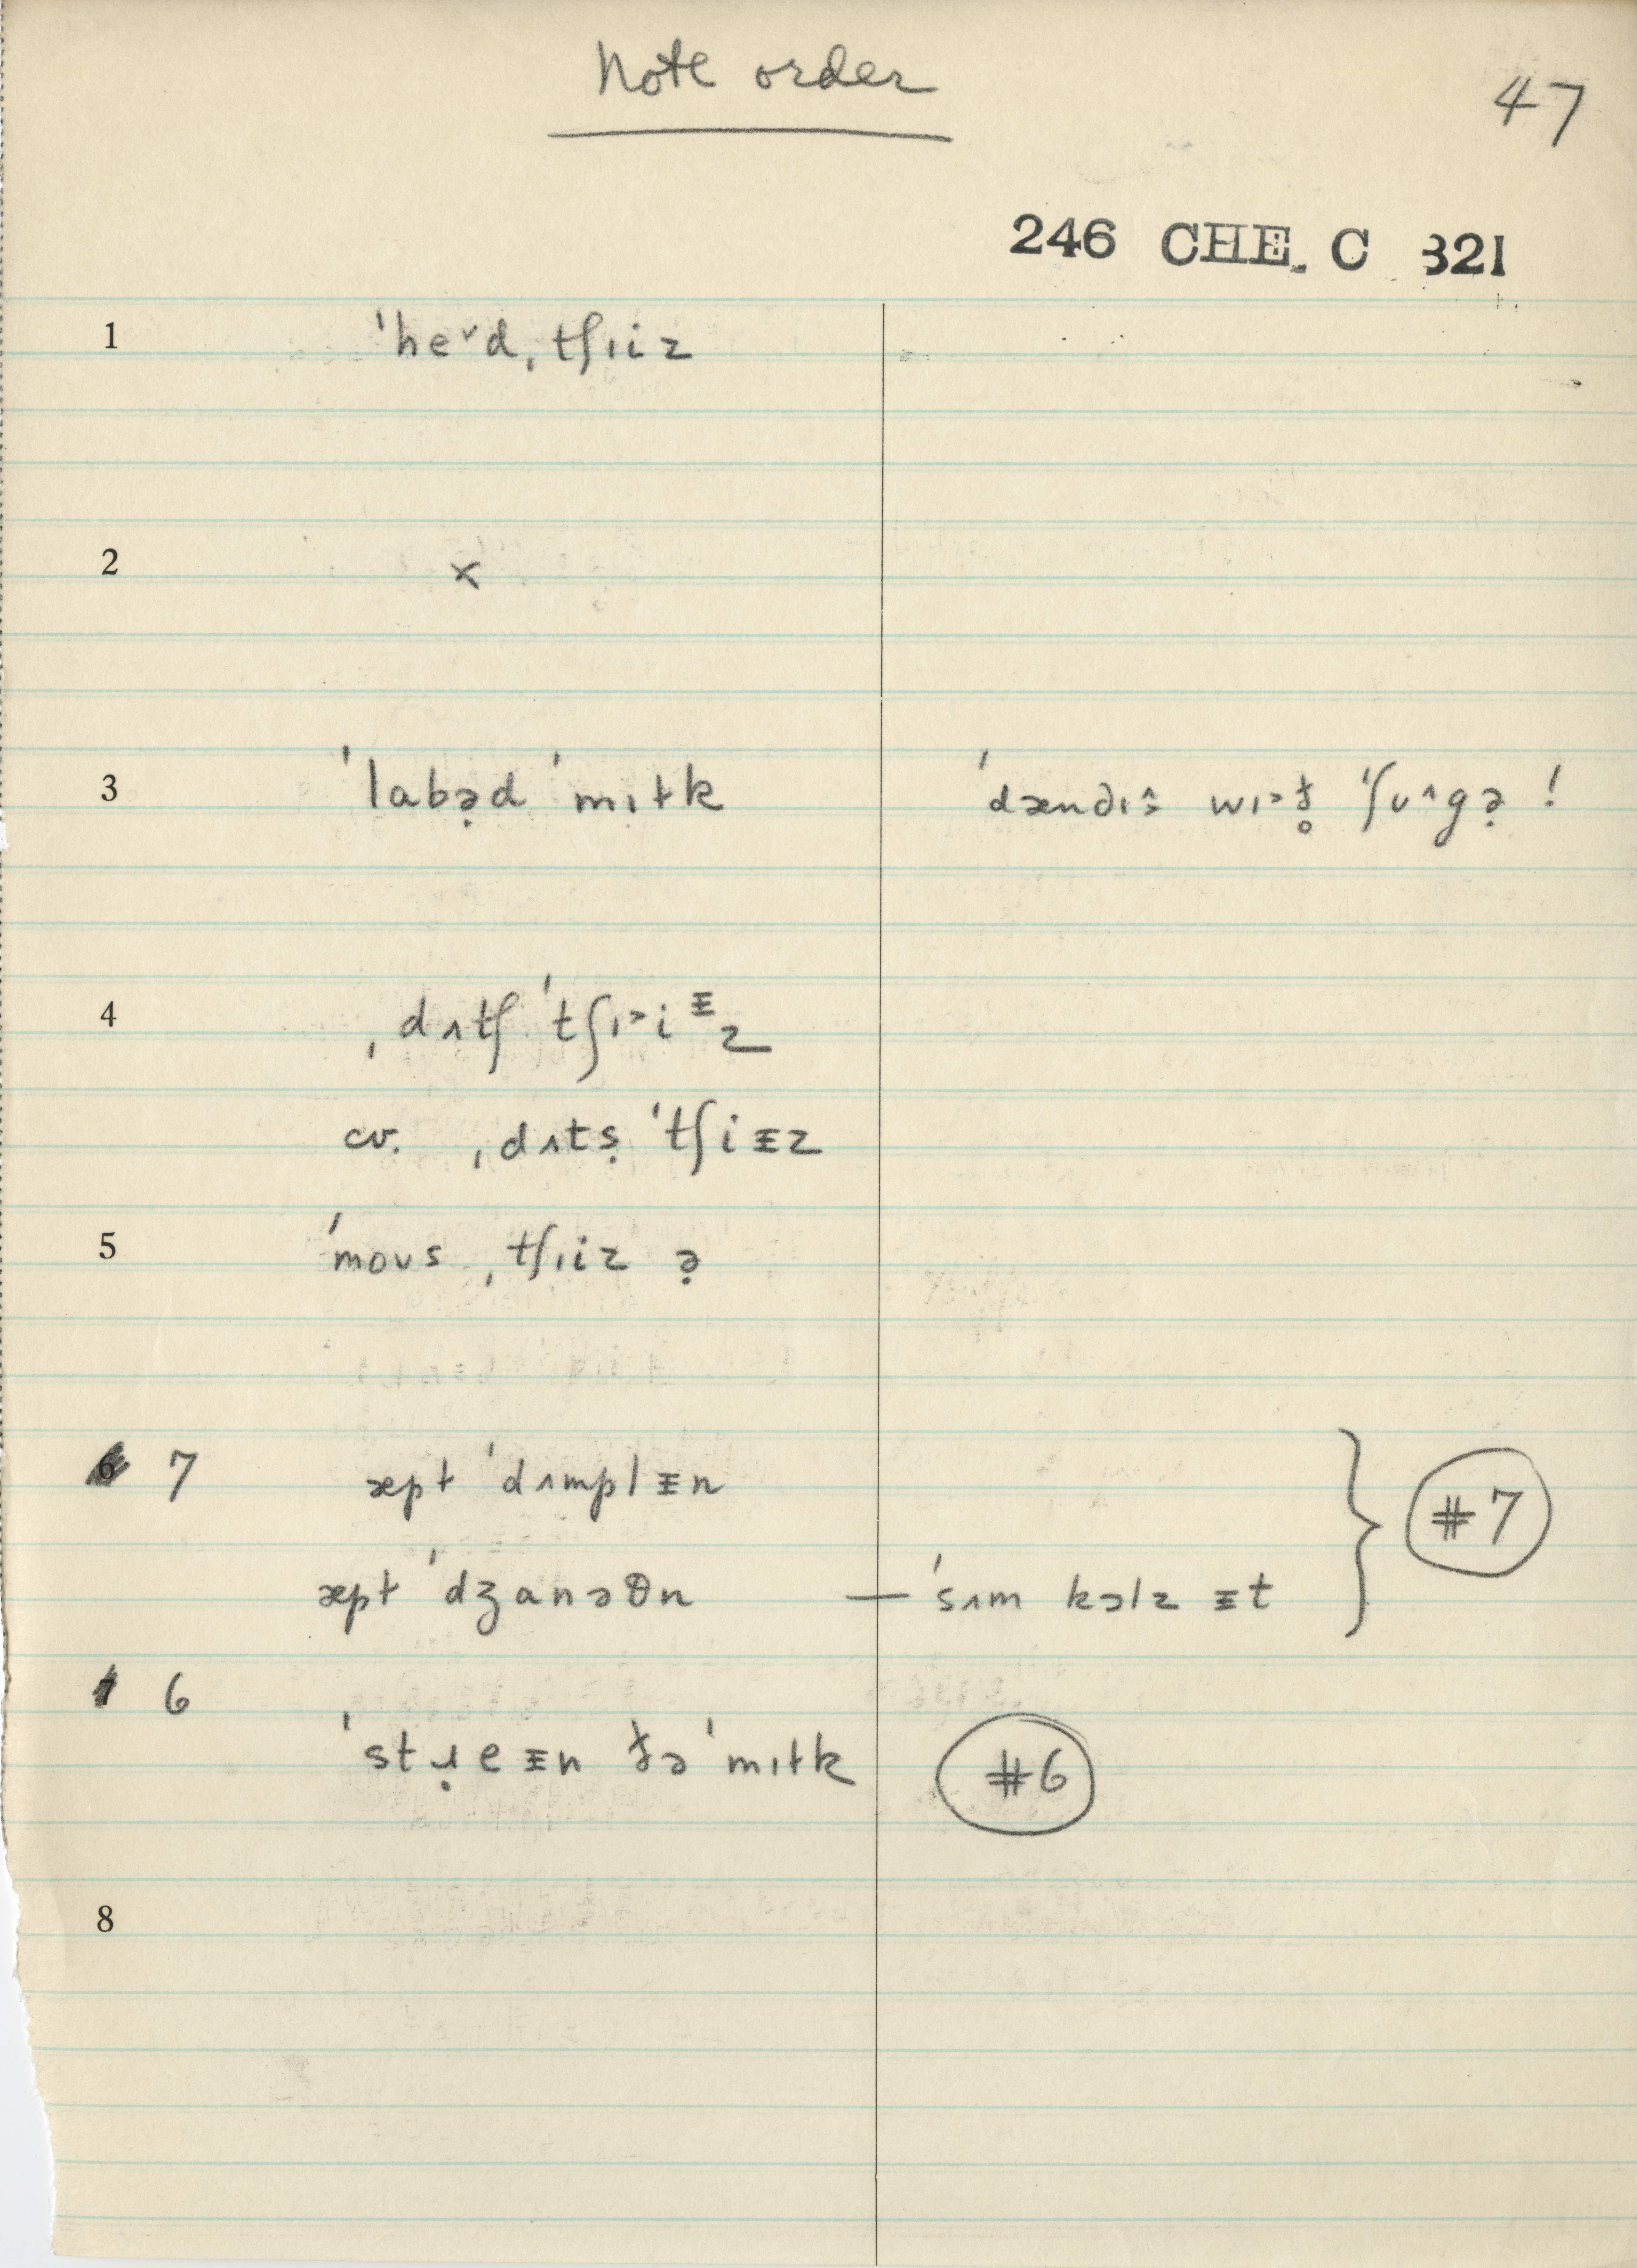 Note order
47
246 CHE. C 321
1 ˈhe˅d ˌtʃɪiz
2 x
3 ˈlabə̣d ˈmɪɫk ˈdændɪ˄z wɪ˃ɫ̥ ˈʃʊ˄gə̣ !
4 ˌdʌtʃ ˈtʃɪ˃iᵻz
cv. ˌdʌtṣ ˈtʃiᵻz
5 ˈmoʊs ˌtʃɪiz ə̣
6 7 æpɫ ˈdʌmplᵻn
æpɫ ˈdʒanəθn — ˈsʌm kɔlz ᵻt } #7
7 6
ˈstɹ̣eᵻn ɟə ˈmɪɫk #6
8